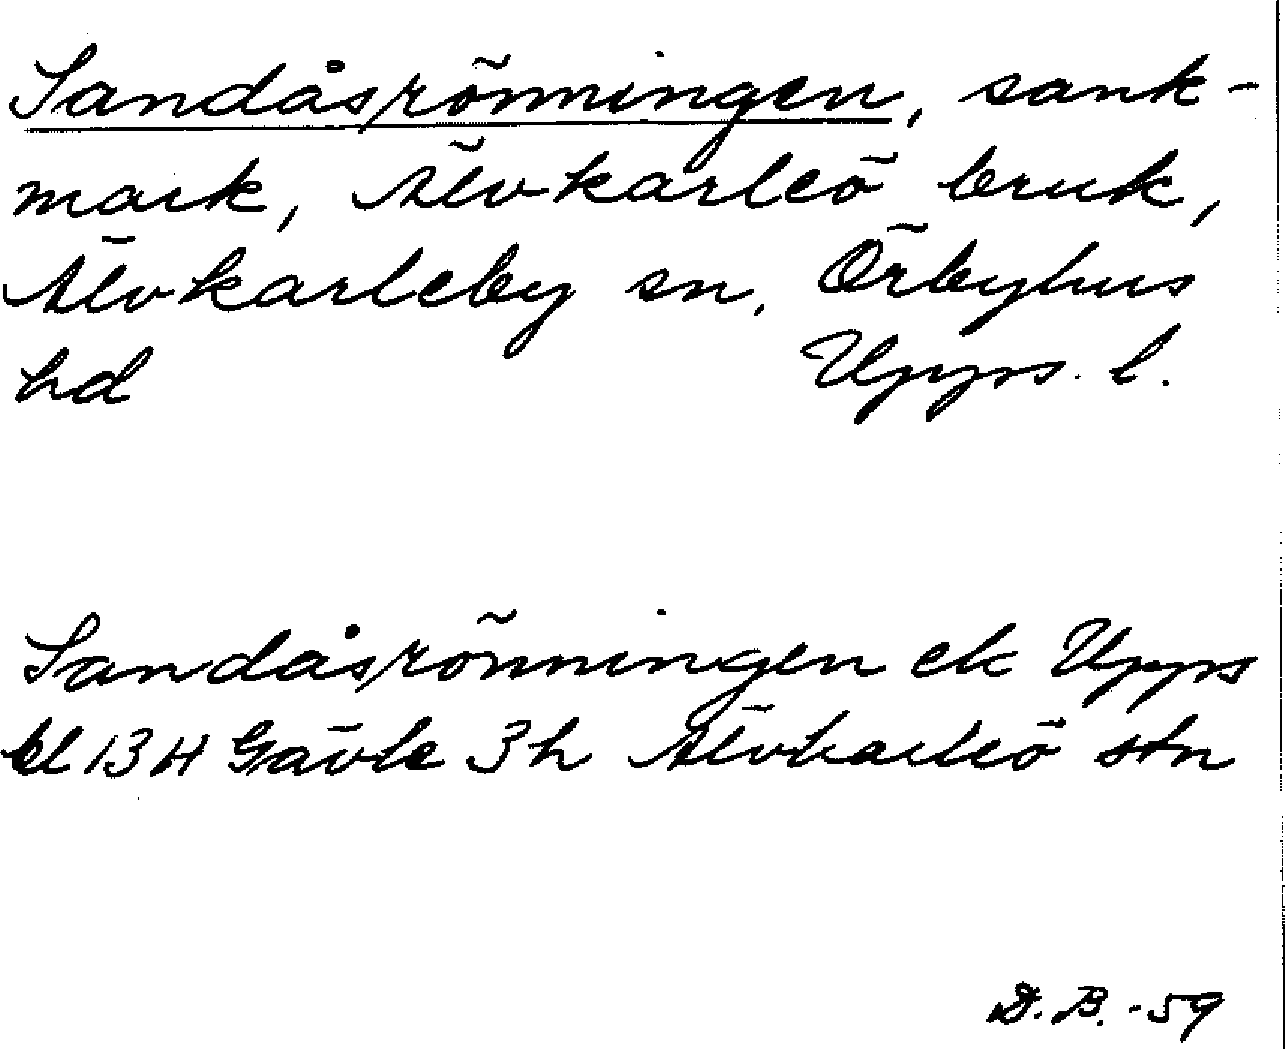 Sandåsrönningen, sank-
mark, Älvkarleö bruk,
Älvkarleby sn, Örbyhus
hd Upps. l.
Sandåsrönningen ek Upps
bl 13 H Gävle 3h Älvkarleö stn
D.B. -59